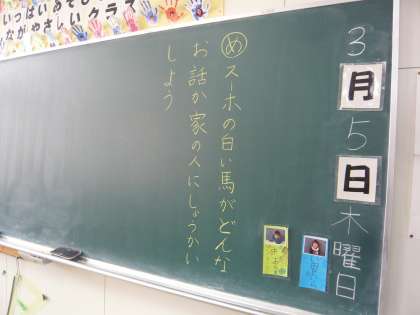 いっぱいあそび
ながやさしいクラス
3月5日木曜日
めスーホの白い馬がどんな
お話か家の人にしょうかい
しよう